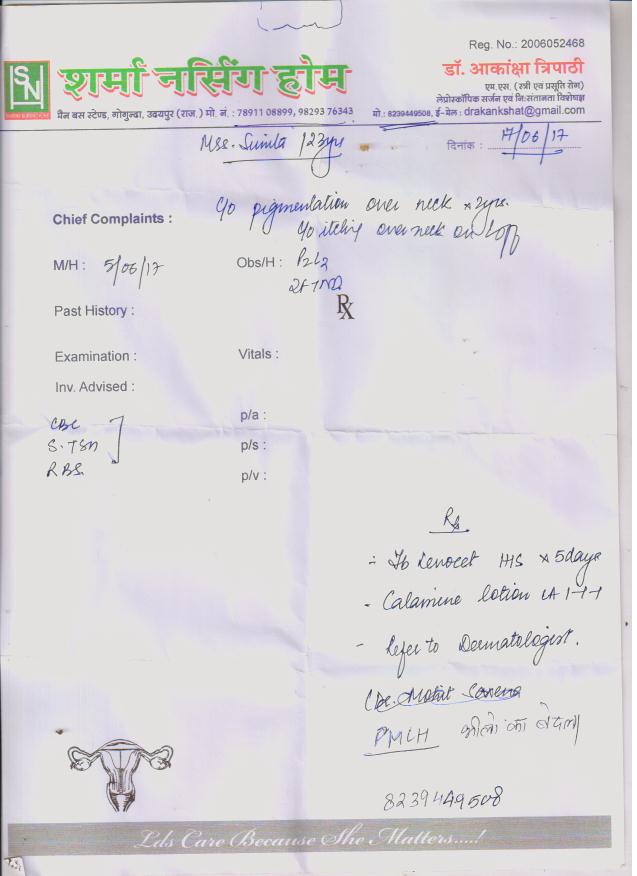 Reg. No.: 2006052468
SN
शर्मा नर्सिंग होम
डॉ. आकांक्षा त्रिपाठी
एम.एस. (स्त्री एवं प्रसूति रोग)
लेप्रोस्कॉपिक सर्जन एवं निःसंतानता विशेषज्ञ
मैन बस स्टेण्ड, गोगुन्दा, उदयपुर (राज.) मो. नं. : 78911 08899, 98293 76343
मो.: 8239449508, ई-मेल : drakankshat@gmail.com
Mrs. Sunita / 23yrs
दिनांक : 17/06/17
Chief Complaints : c/o pigmentation over neck x 2yrs.
c/o itching over neck on & off
M/H : 5/06/17
Obs/H : P2L2
2FTND
Rx
Past History :
Examination :
Vitals :
Inv. Advised :
CBC
S. TSH
RBS
p/a :
p/s :
p/v :
Rx
- Tb Levocet HS x 5days
- Calamine lotion LA 1-1-1
- Refer to Dermatologist.
(Dr. Mohit Saxena
PMCH भीलो का बेदला
8239449508
Lds Care Because She Matters.....!